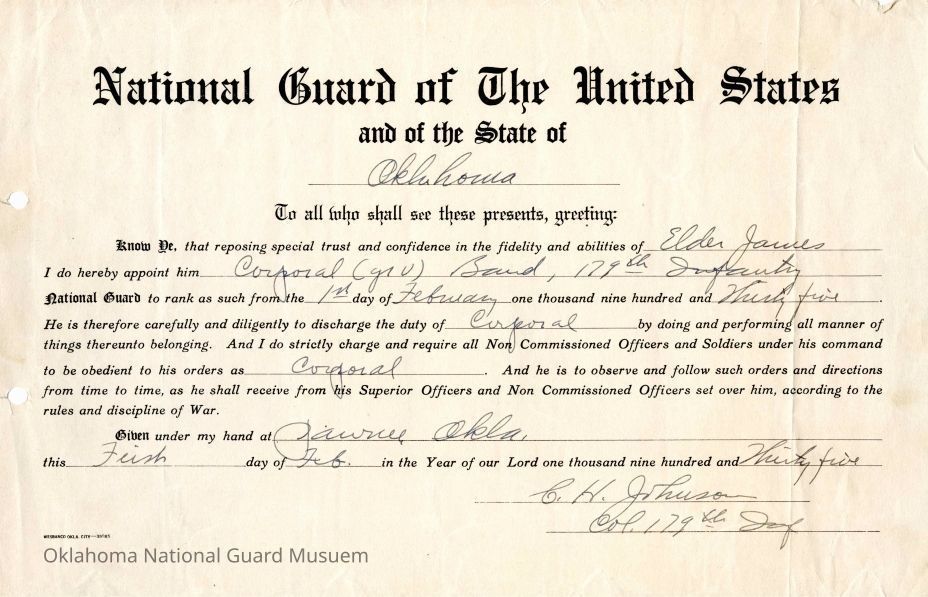 National Guard of The United States
and of the State of
Oklahoma
To all who shall see these presents, greeting:
Know Ye, that reposing special trust and confidence in the fidelity and abilities of Elder James
I do hereby appoint him Corporal (gr V) Band, 179th Infantry
National Guard to rank as such from the 1st day of February one thousand nine hundred and Thirty five.
He is therefore carefully and diligently to discharge the duty of Corporal by doing and performing all manner of
things thereunto belonging. And I do strictly charge and require all Non Commissioned Officers and Soldiers under his command
to be obedient to his orders as Corporal. And he is to observe and follow such orders and directions
from time to time, as he shall receive from his Superior Officers and Non Commissioned Officers set over him, according to the
rules and discipline of War.
Given under my hand at Pawnee Okla.
this First day of Feb. in the Year of our Lord one thousand nine hundred and Thirty five
C. H. Johnson
Col. 179th Inf
WESBANCO OKLA. CITY
Oklahoma National Guard Musuem